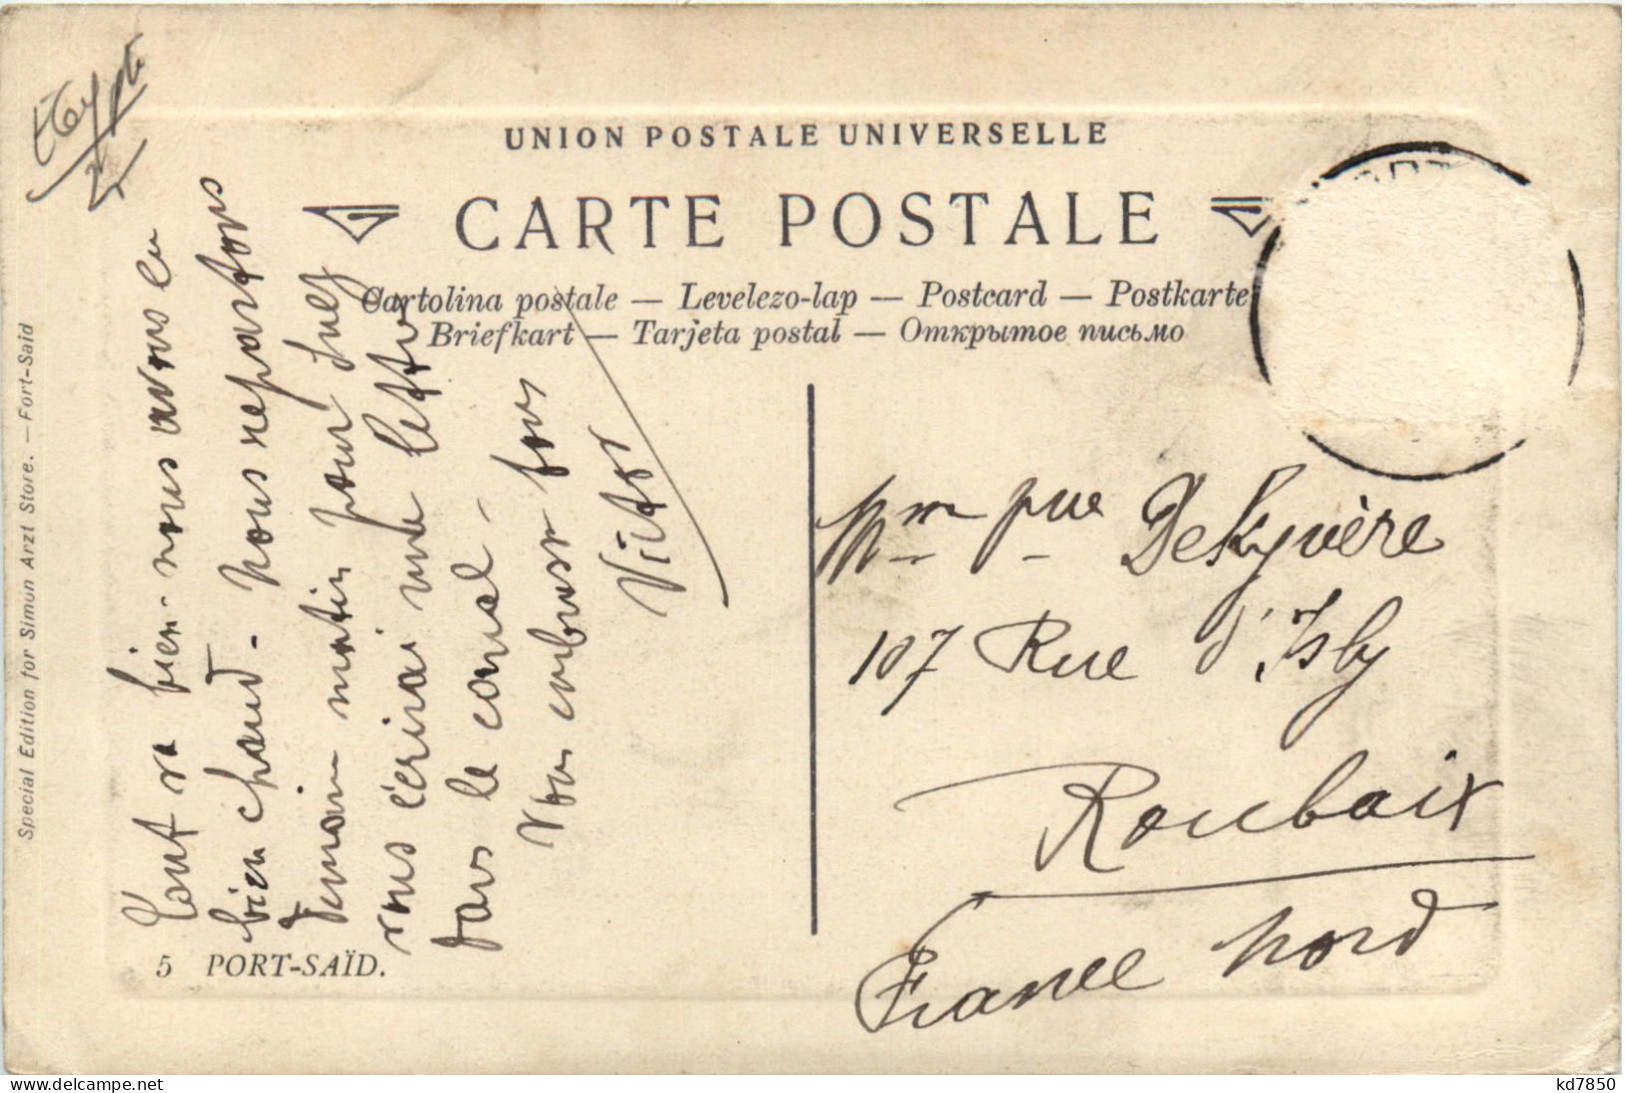 Egypte
UNION POSTALE UNIVERSELLE
CARTE POSTALE
Cartolina postale — Levelezo-lap — Postcard — Postkarte
Briefkart — Tarjeta postal — Открытое письмо
Special Edition for Simon Arzt Store. — Port-Said
Tout va bien - nous avons eu
bien chaud - nous repartons
demain matin pour Suez
vous écrirai une lettre
dans le canal -
Vous embrasse tous
Victor
Mme Dekyvère
107 Rue d'Isly
Roubaix
France Nord
5 PORT-SAÏD.
www.delcampe.net
kd7850